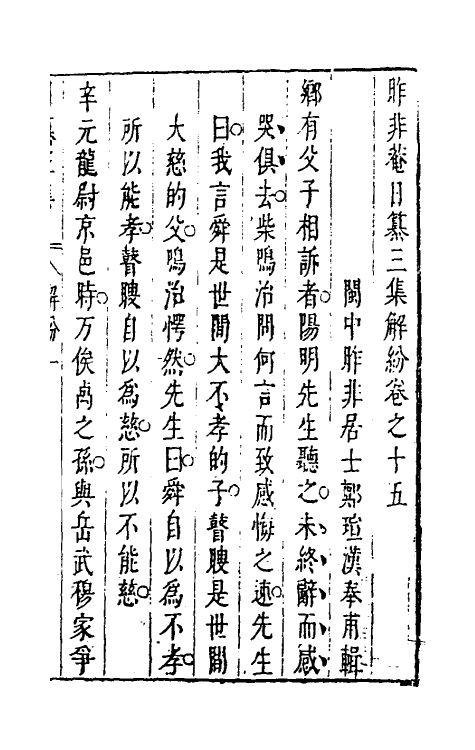 昨非菴日纂三集解紛卷之十五
閩中昨非居士鄭瑄漢奉甫輯
鄉有父子相訴者陽明先生聽之未終辭而感
哭俱去柴鳴治問何言而致感悔之速先生
曰我言舜是世間大不孝的子瞽瞍是世間
大慈的父鳴治愕然先生曰舜自以為不孝
所以能孝瞽瞍自以為慈所以不能慈
辛元龍尉京邑時万俟卨之孫與岳武穆家爭
解紛一